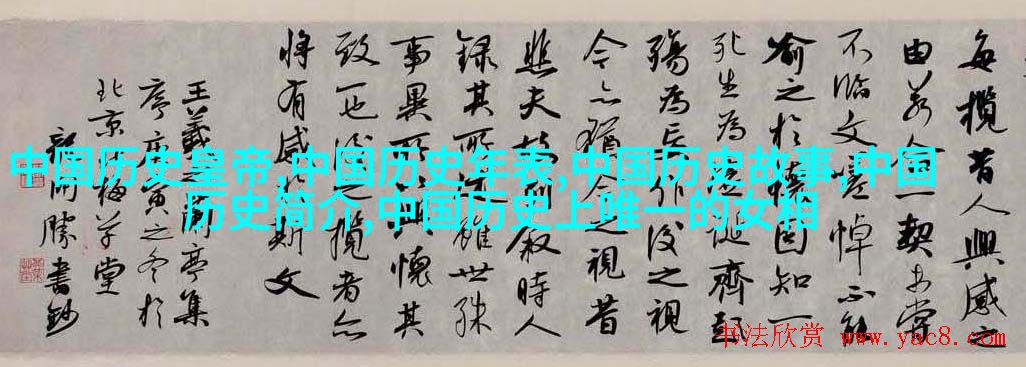 每攬昔人興感之
由若合一契未嘗
不臨文嗟悼不能
喻之於懷固知一
死生為虛誕齊彭
殤為妄作後之視
今亦猶今之視昔
悲夫故列敘時人
錄其所述雖世殊
事異所以興懷其
致一也後之攬者亦
將有感於斯文
王羲之蘭亭集
序庚寅之冬於
北京梅堂
開勝書鈔
中国历史皇帝,中国历史年表,中国历史故事,中国
历史简介,中国历史上唯一的女相
书法欣赏 www.yac8.com